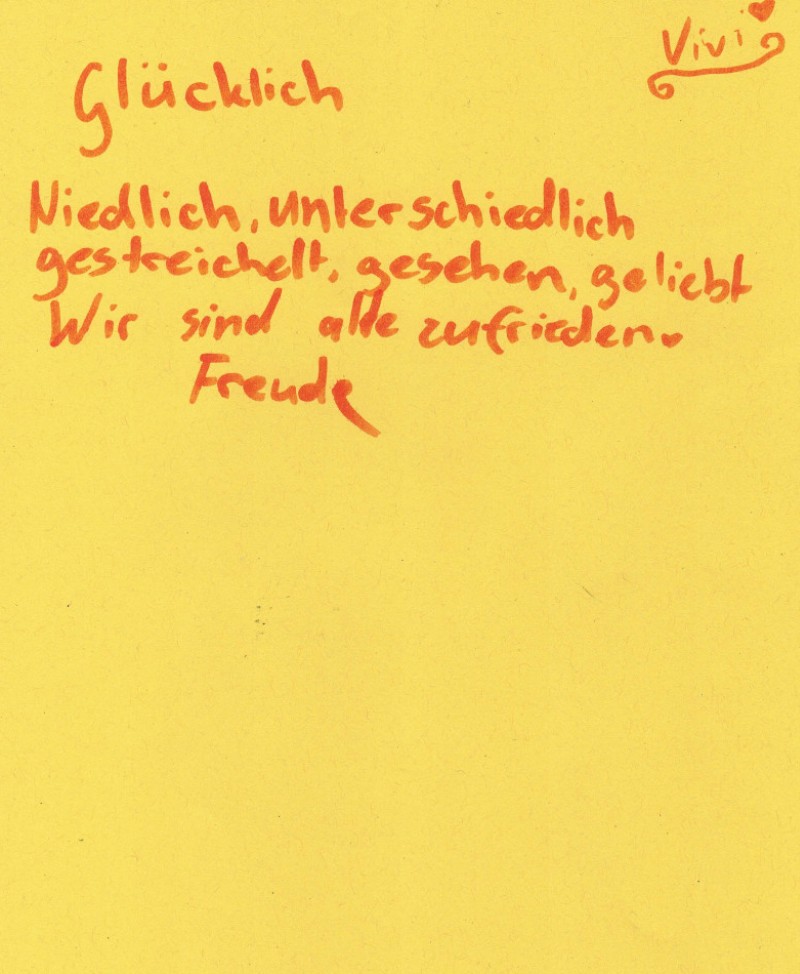 Vivi
Glücklich
Niedlich, unterschiedlich
gestreichelt, gesehen, geliebt
Wir sind alle zufrieden.
Freude